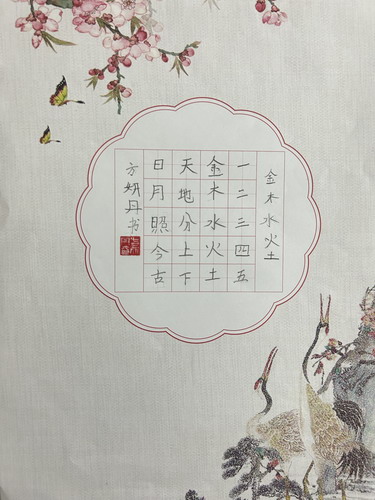 金木水火土
一二三四五
金木水火土
天地分上下
日月照今古
方妍丹书